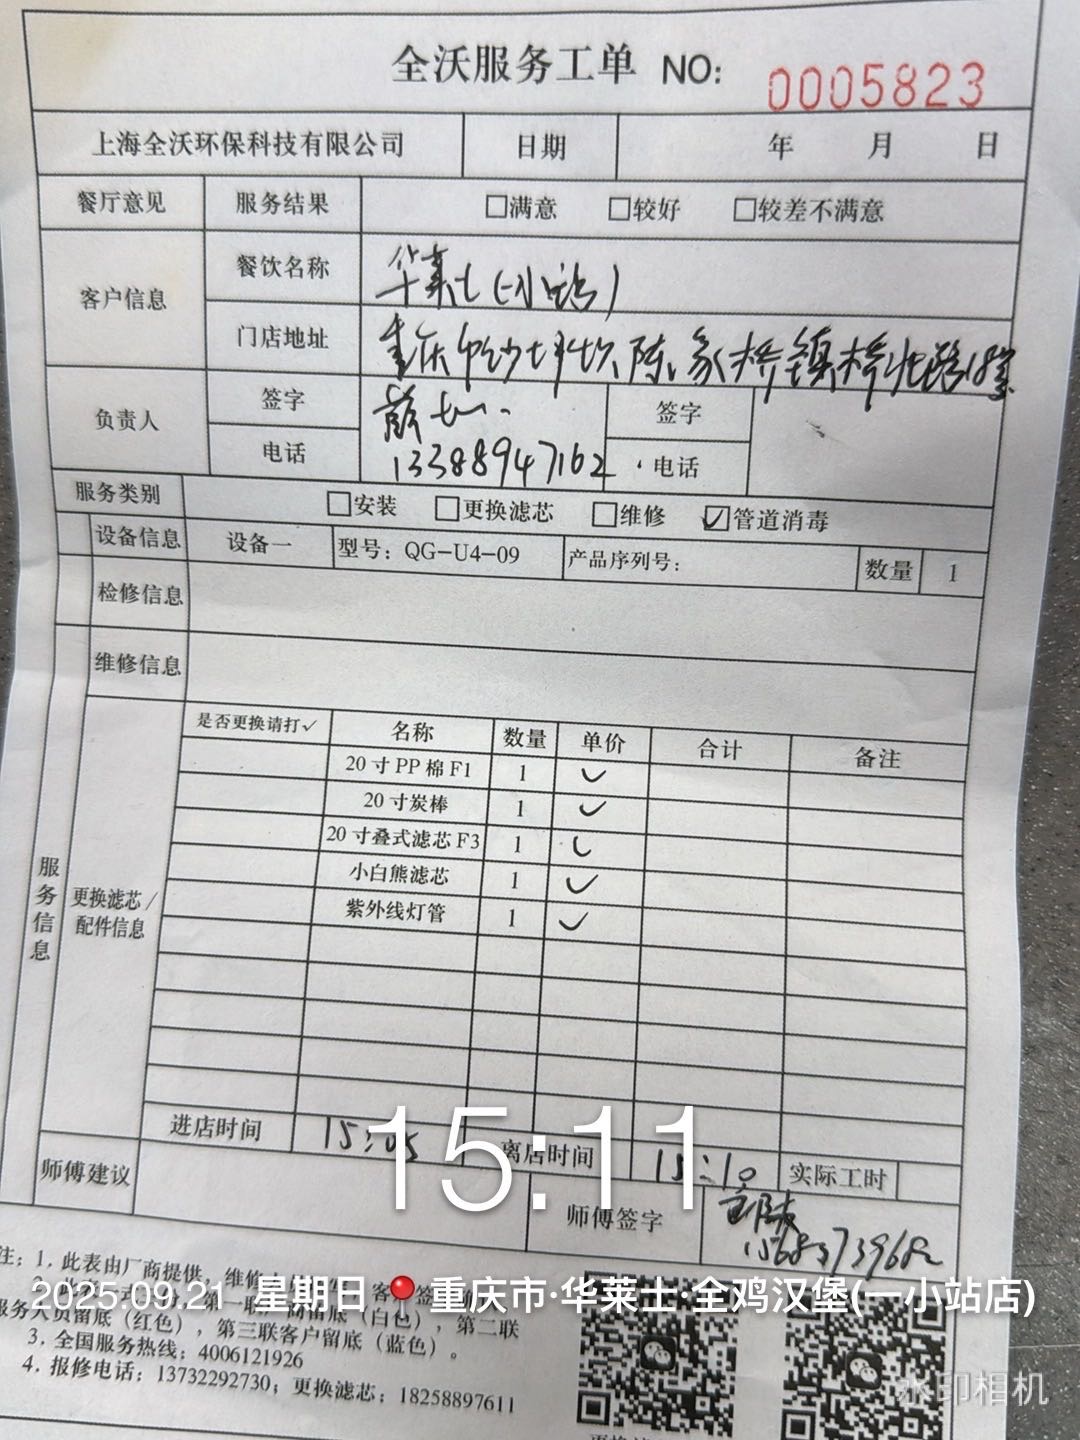 全沃服务工单 NO: 0005823
上海全沃环保科技有限公司 日期 年 月 日
餐厅意见 服务结果 □满意 □较好 □较差不满意
客户信息 餐饮名称 华莱士(一小站)
门店地址 重庆市沙坪坝陈家桥镇桥北路18
负责人 签字 签字
电话 13388947162 电话
服务类别 □安装 □更换滤芯 □维修 ☑管道消毒
设备信息 设备一 型号: QG-U4-09 产品序列号: 数量 1
检修信息
维修信息
服务信息
更换滤芯/配件信息
是否更换请打✓ 名称 数量 单价 合计 备注
20寸PP棉F1 1 ✓
20寸炭棒 1 ✓
20寸叠式滤芯F3 1 ✓
小白熊滤芯 1 ✓
紫外线灯管 1 ✓
进店时间 15:05 离店时间 15:10 实际工时
师傅建议 师傅签字
15:11
注: 1. 此表由厂商提供, 维修
2025.09.21 星期日 📍重庆市·华莱士·全鸡汉堡(一小站店)
服务人员留底 (红色), 第三联客户留底 (蓝色)。
3. 全国服务热线: 4006121926
4. 报修电话: 13732292730; 更换滤芯: 18258897611
水印相机